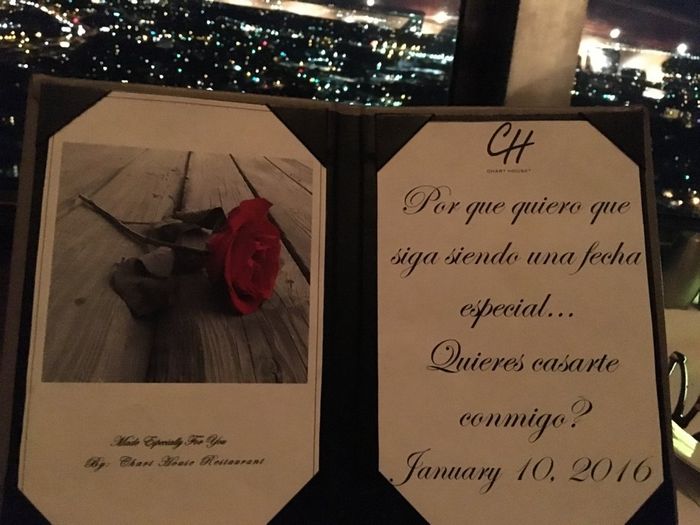 Made Especially For You
By: Chart House Restaurant
CH
CHART HOUSE
Por que quiero que
siga siendo una fecha
especial...
Quieres casarte
conmigo?
January 10, 2016